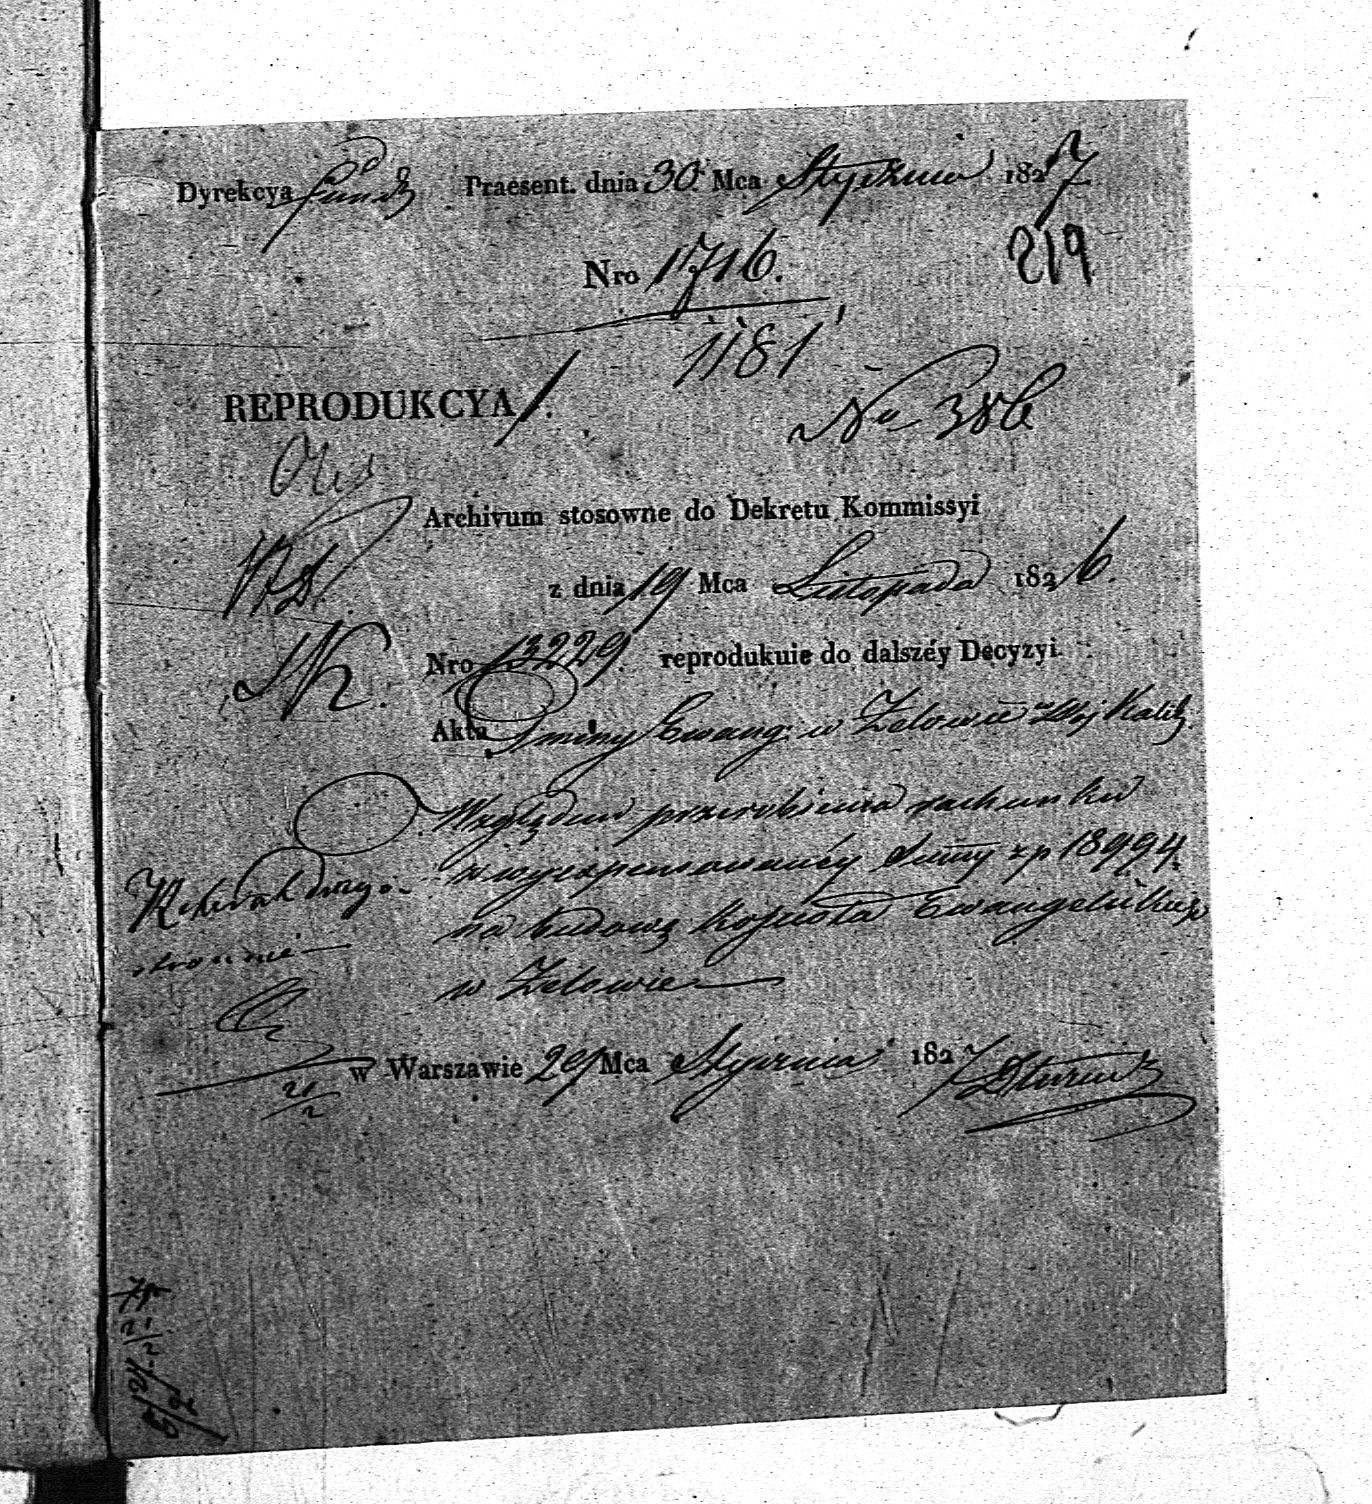 Dyrekcya Praesent. dnia 30. Mca Stycznia 1827
219
Nro 1716.
1181
REPRODUKCYA 1.
No 386
Archivum stosowne do Dekretu Kommissyi
z dnia 19 Mca Listopada 1826.
Nro 13229. reprodukuie do dalszéy Decyzyi
Akta Gminy Ewang: w Zelowie Woj Kalisz.
Względem przerobienia rachunku
z wyexpensowanéy Summy zp 18994
na budowę Kościoła Ewangelickiego
w Zelowie
w Warszawie 29 Mca Stycznia 1827